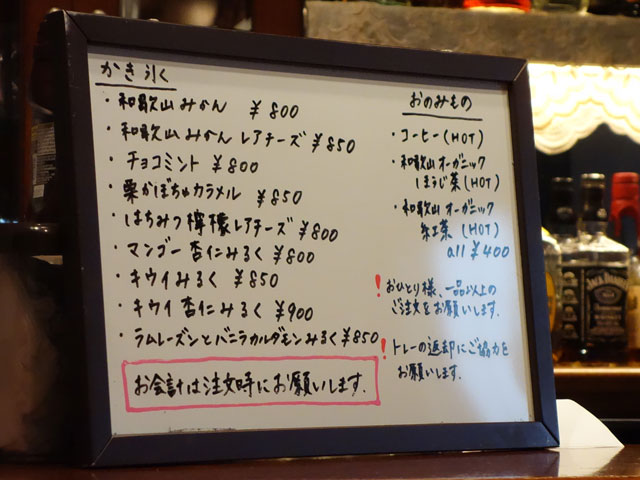 かき氷
・和歌山みかん ¥800
・和歌山みかんレアチーズ ¥850
・チョコミント ¥800
・栗かぼちゃカラメル ¥850
・はちみつ檸檬レアチーズ ¥800
・マンゴー杏仁みるく ¥800
・キウイみるく ¥850
・キウイ杏仁みるく ¥900
・ラムレーズンとバニラカルダモンみるく ¥850
お会計は注文時にお願いします.
おのみもの
・コーヒー(HOT)
・和歌山オーガニック
ほうじ茶(HOT)
・和歌山オーガニック
紅茶(HOT)
all ¥400
! おひとり様、一品以上の
ご注文をお願いします.
! トレーの返却にご協力を
お願いします.
JACK DANIEL'S